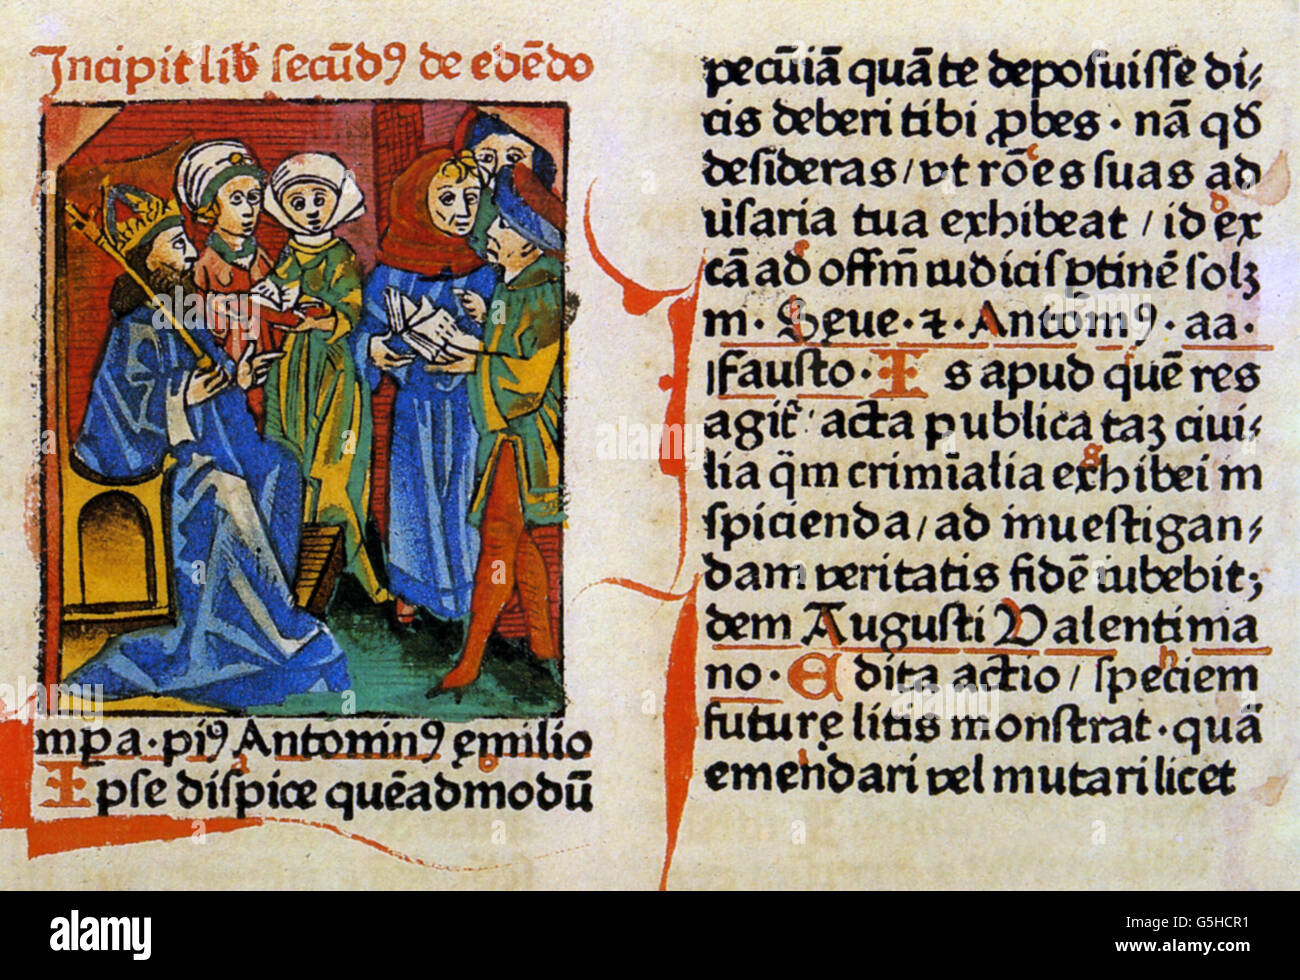 Incipit lib̄ secūdꝰ de edēdo
mpa·piꝰ Antoninꝰ emilio
Ipse dispice quēadmodū
pecūiā quā te deposuisse di⸗
cis deberi tibi ꝓbes·nā qđ
desideras/vt rōes suas ad
ūsaria tua exhibeat/id ex
cā ad offm̄ iudicis ptinē solꝫ
m·Seue·⁊·Antōinꝰ·aa·
Fausto·Is apud quē res
agit᷑ acta publica taꝫ ciui⸗
lia q̄m crimīalia exhibei in
spicienda/ad inuestigan⸗
dam veritatis fidē iubebit;
dem Augusti Valentinia
no·Edita actio/speciem
future litis monstrat·quā
emendari vel mutari licet
alamy
a
alamy
Image ID: G5HCR1
www.alamy.com